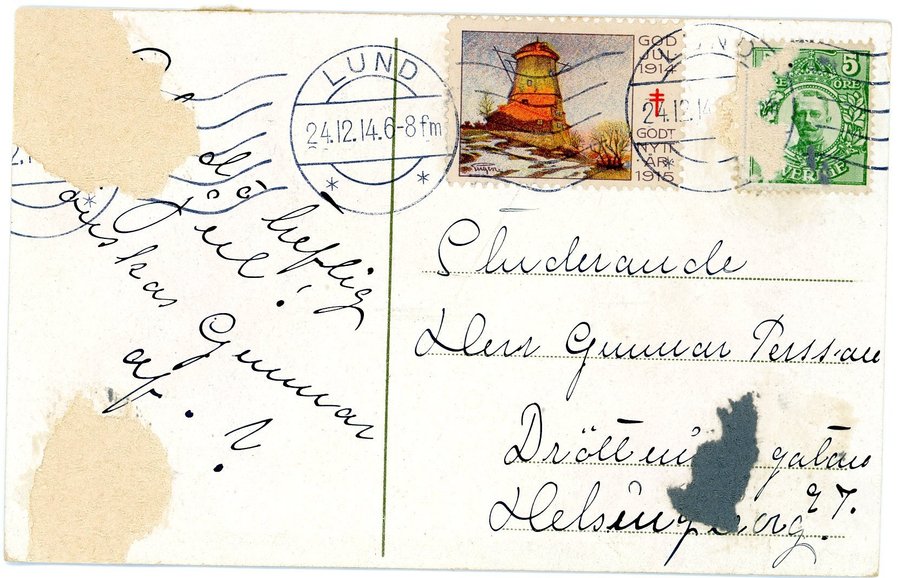 LUND
24.12.14.6-8 fm
GOD
JUL
1914
GODT
NYTT
ÅR
1915
UND
24.12.14
5
ÖRE
SVERIGE
heflig
Jul!
önskas Gunnar
af.
Studerande
Herr Gunnar Persson
Drottni gatan
Helsingborg.